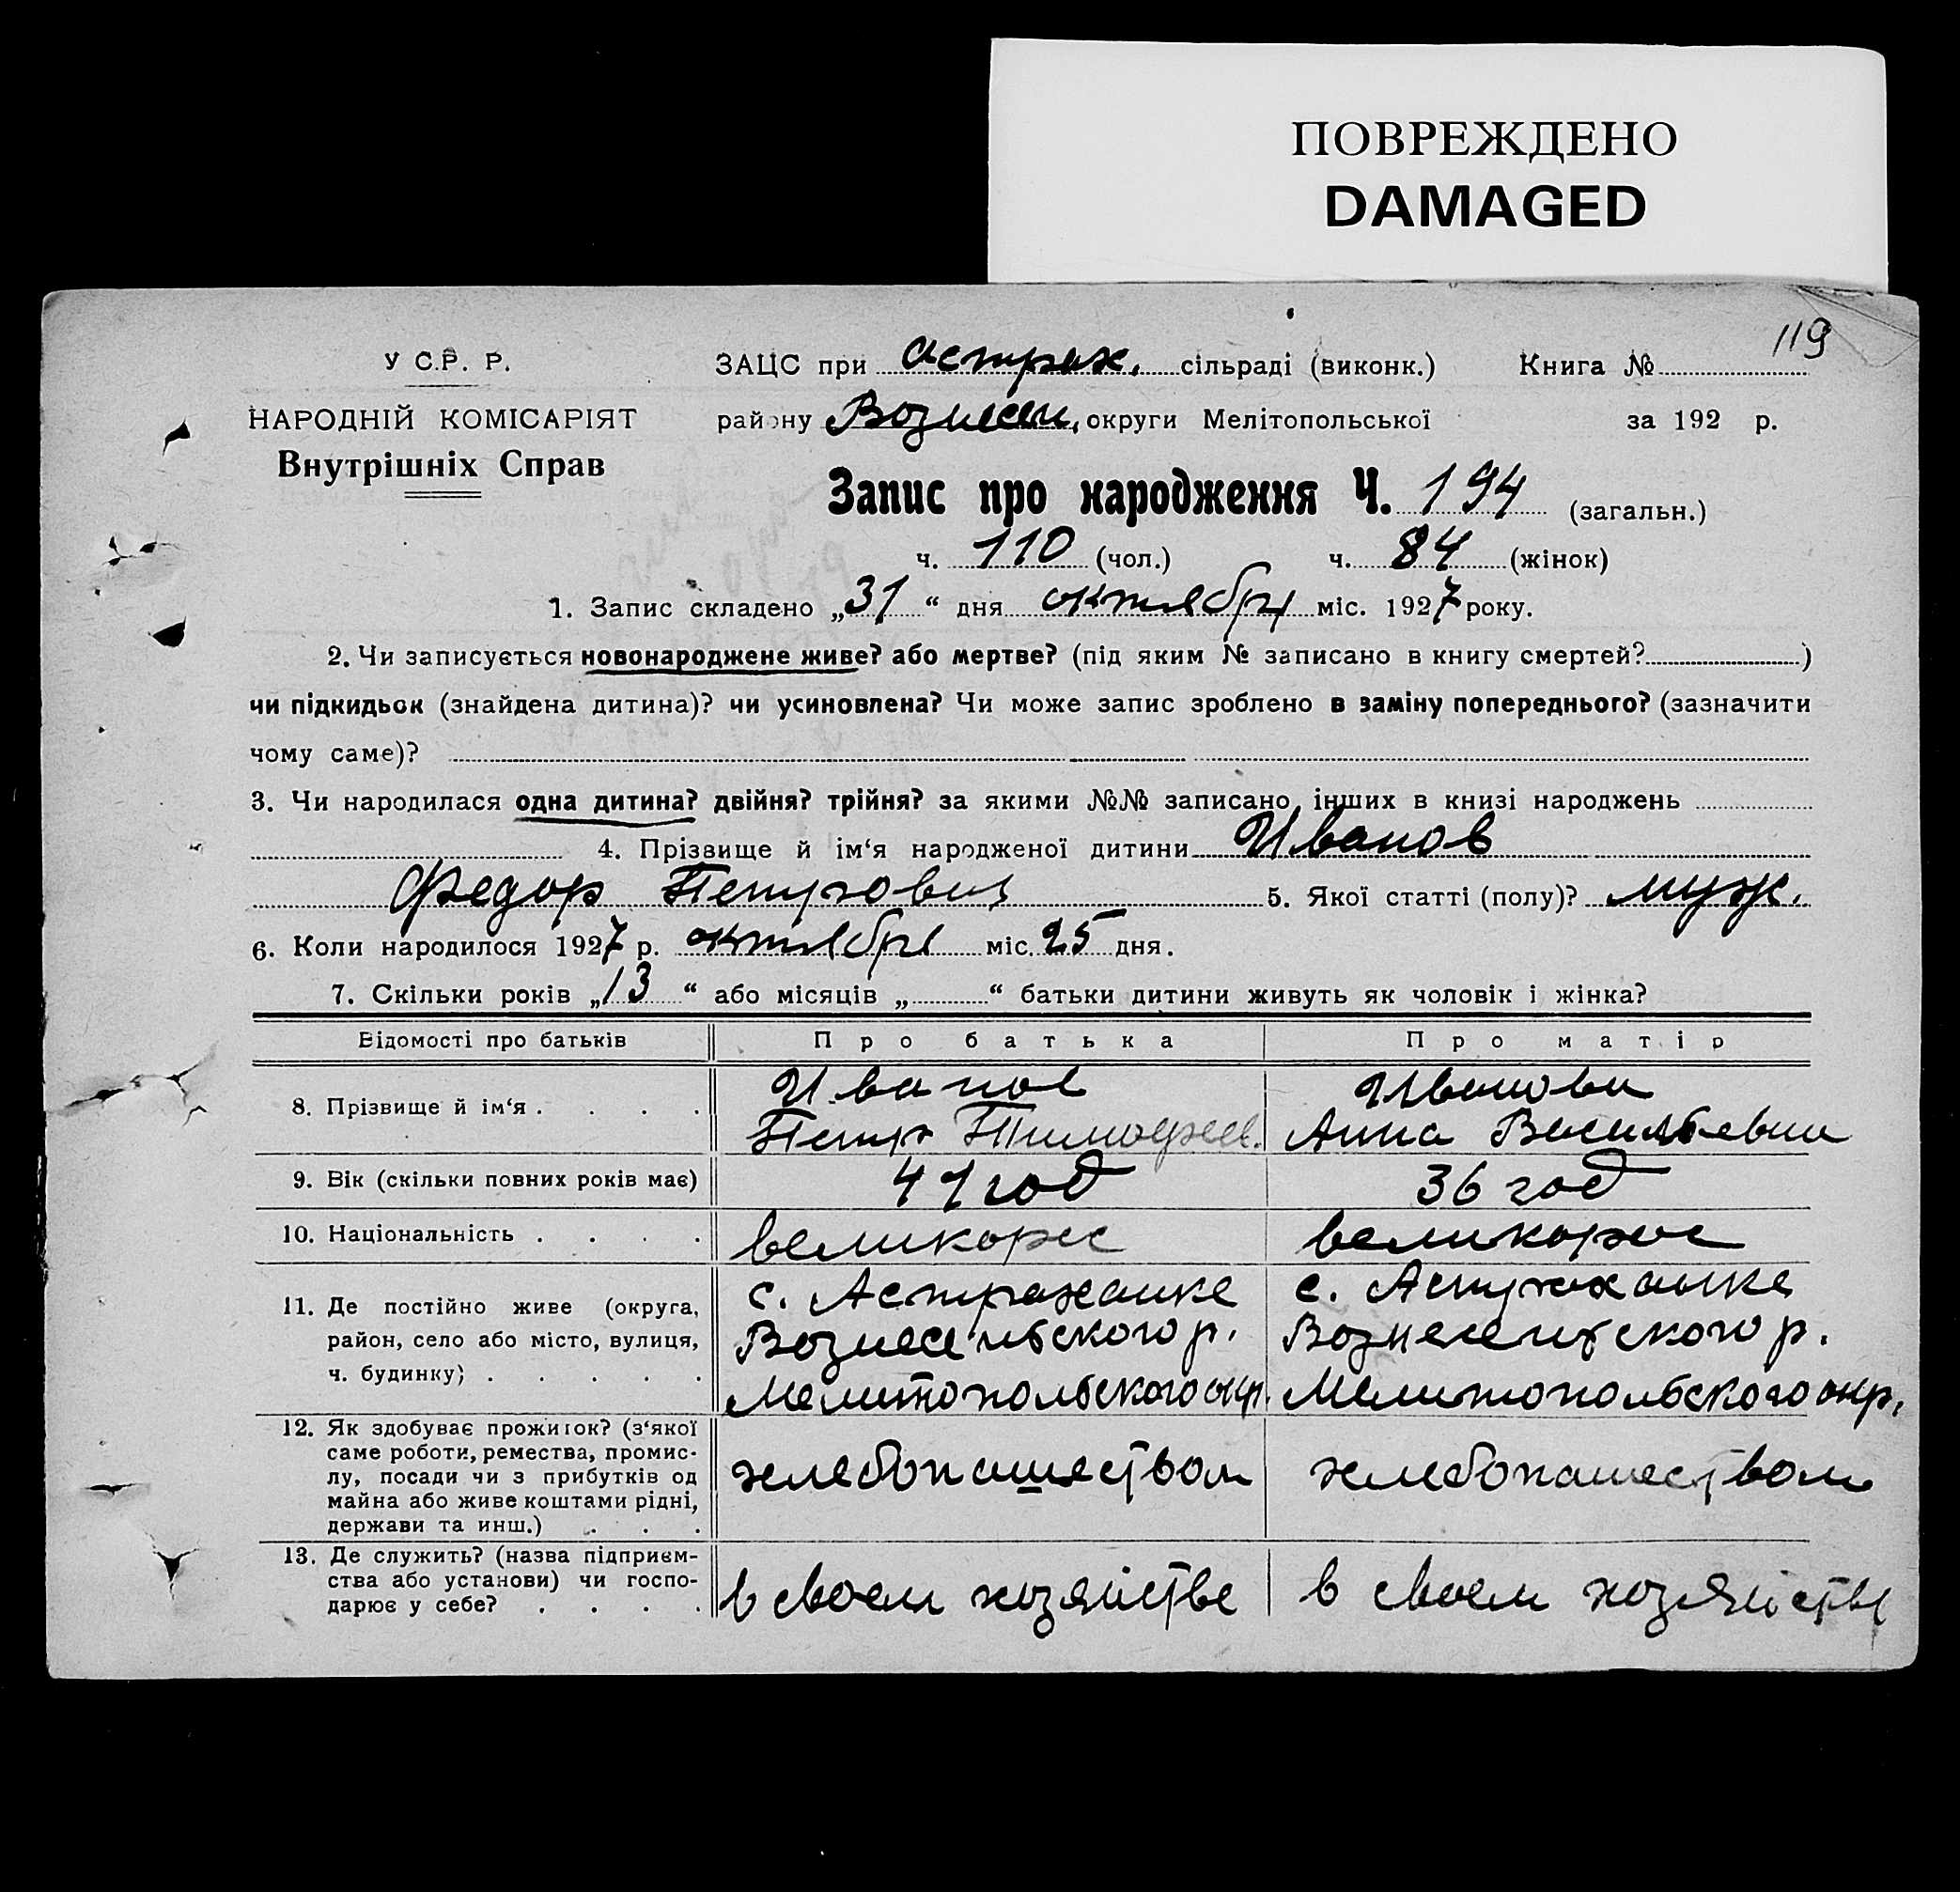 ПОВРЕЖДЕНО
DAMAGED
119
У С.Р. Р.
ЗАЦС при Астрах. сільраді (виконк.) Книга №
НАРОДНІЙ КОМІСАРІЯТ
району Вознесен. округи Мелітопольської за 192 р.
Внутрішніх Справ
Запис про народження Ч. 194 (загальн.)
ч. 110 (чол.) ч. 84 (жінок)
1. Запис складено „31“ дня октября міс. 1927 року.
2. Чи записується новонароджене живе? або мертве? (під яким № записано в книгу смертей? )
чи підкидьок (знайдена дитина)? чи усиновлена? Чи може запис зроблено в заміну попереднього? (зазначити
чому саме)?
3. Чи народилася одна дитина? двійня? трійня? за якими №№ записано інших в книзі народжень
4. Прізвище й ім‘я народженої дитини Иванов
Федор Петрович 5. Якої статті (полу)? муж.
6. Коли народилося 1927 р. октября міс. 25 дня.
7. Скільки років „13“ або місяців „ “ батьки дитини живуть як чоловік і жінка?
Відомості про батьків Про батька Про матір
8. Прізвище й ім‘я . . . . Иванов Иванова
Петр Тимофеев. Анна Васильевна
9. Вік (скільки повних років має) 41 год 36 год
10. Національність . . . . великорос великорос
11. Де постійно живе (округа, с. Астраханке с. Астраханке
район, село або місто, вулиця, Вознесенського р. Вознесентского р.
ч. будинку) . . . . . Мелитопольского окр. Мелитопольского окр.
12. Як здобуває прожиток? (з‘якої
саме роботи, ремества, промис-
лу, посади чи з прибутків од хлебопашеством хлебопашеством
майна або живе коштами рідні,
держави та инш.) . . .
13. Де служить? (назва підприєм-
ства або установи) чи госпо- в своем хозяйстве в своем хозяйстве
дарює у себе? . . . .